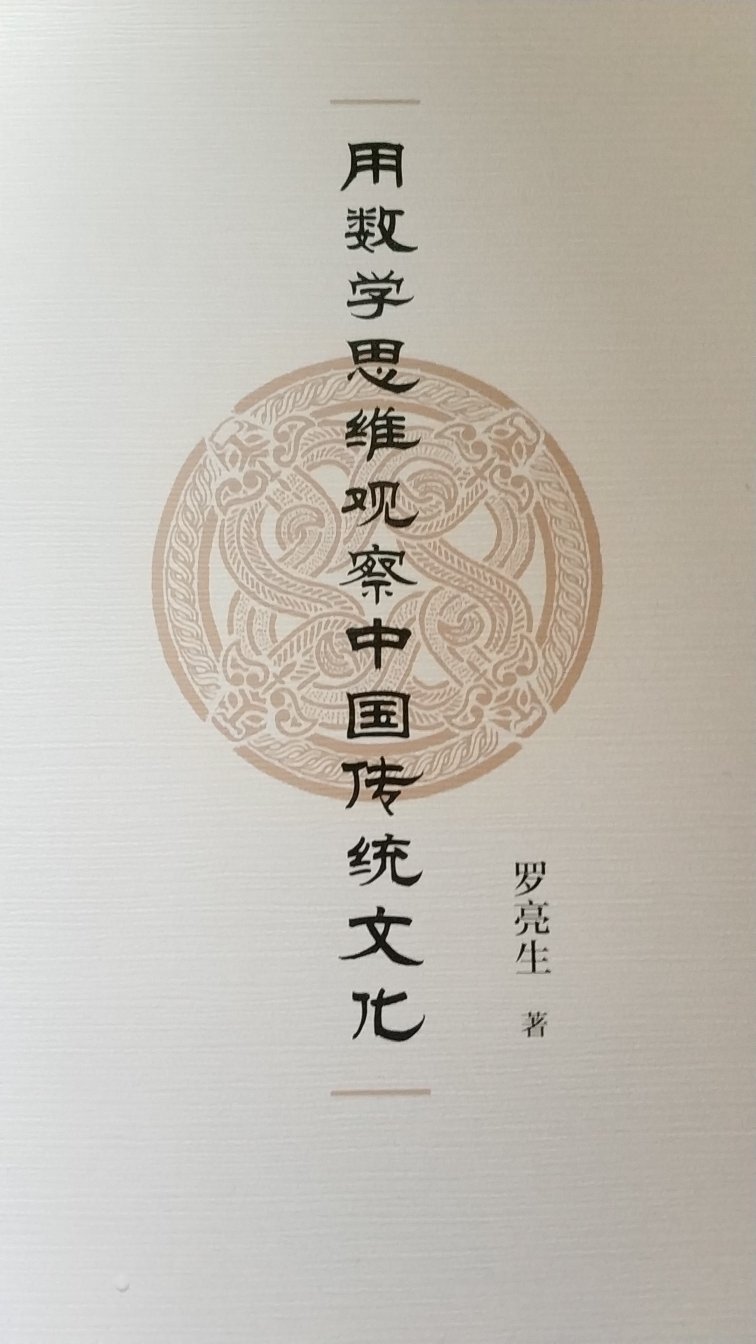 用数学思维观察中国传统文化
罗亮生 著